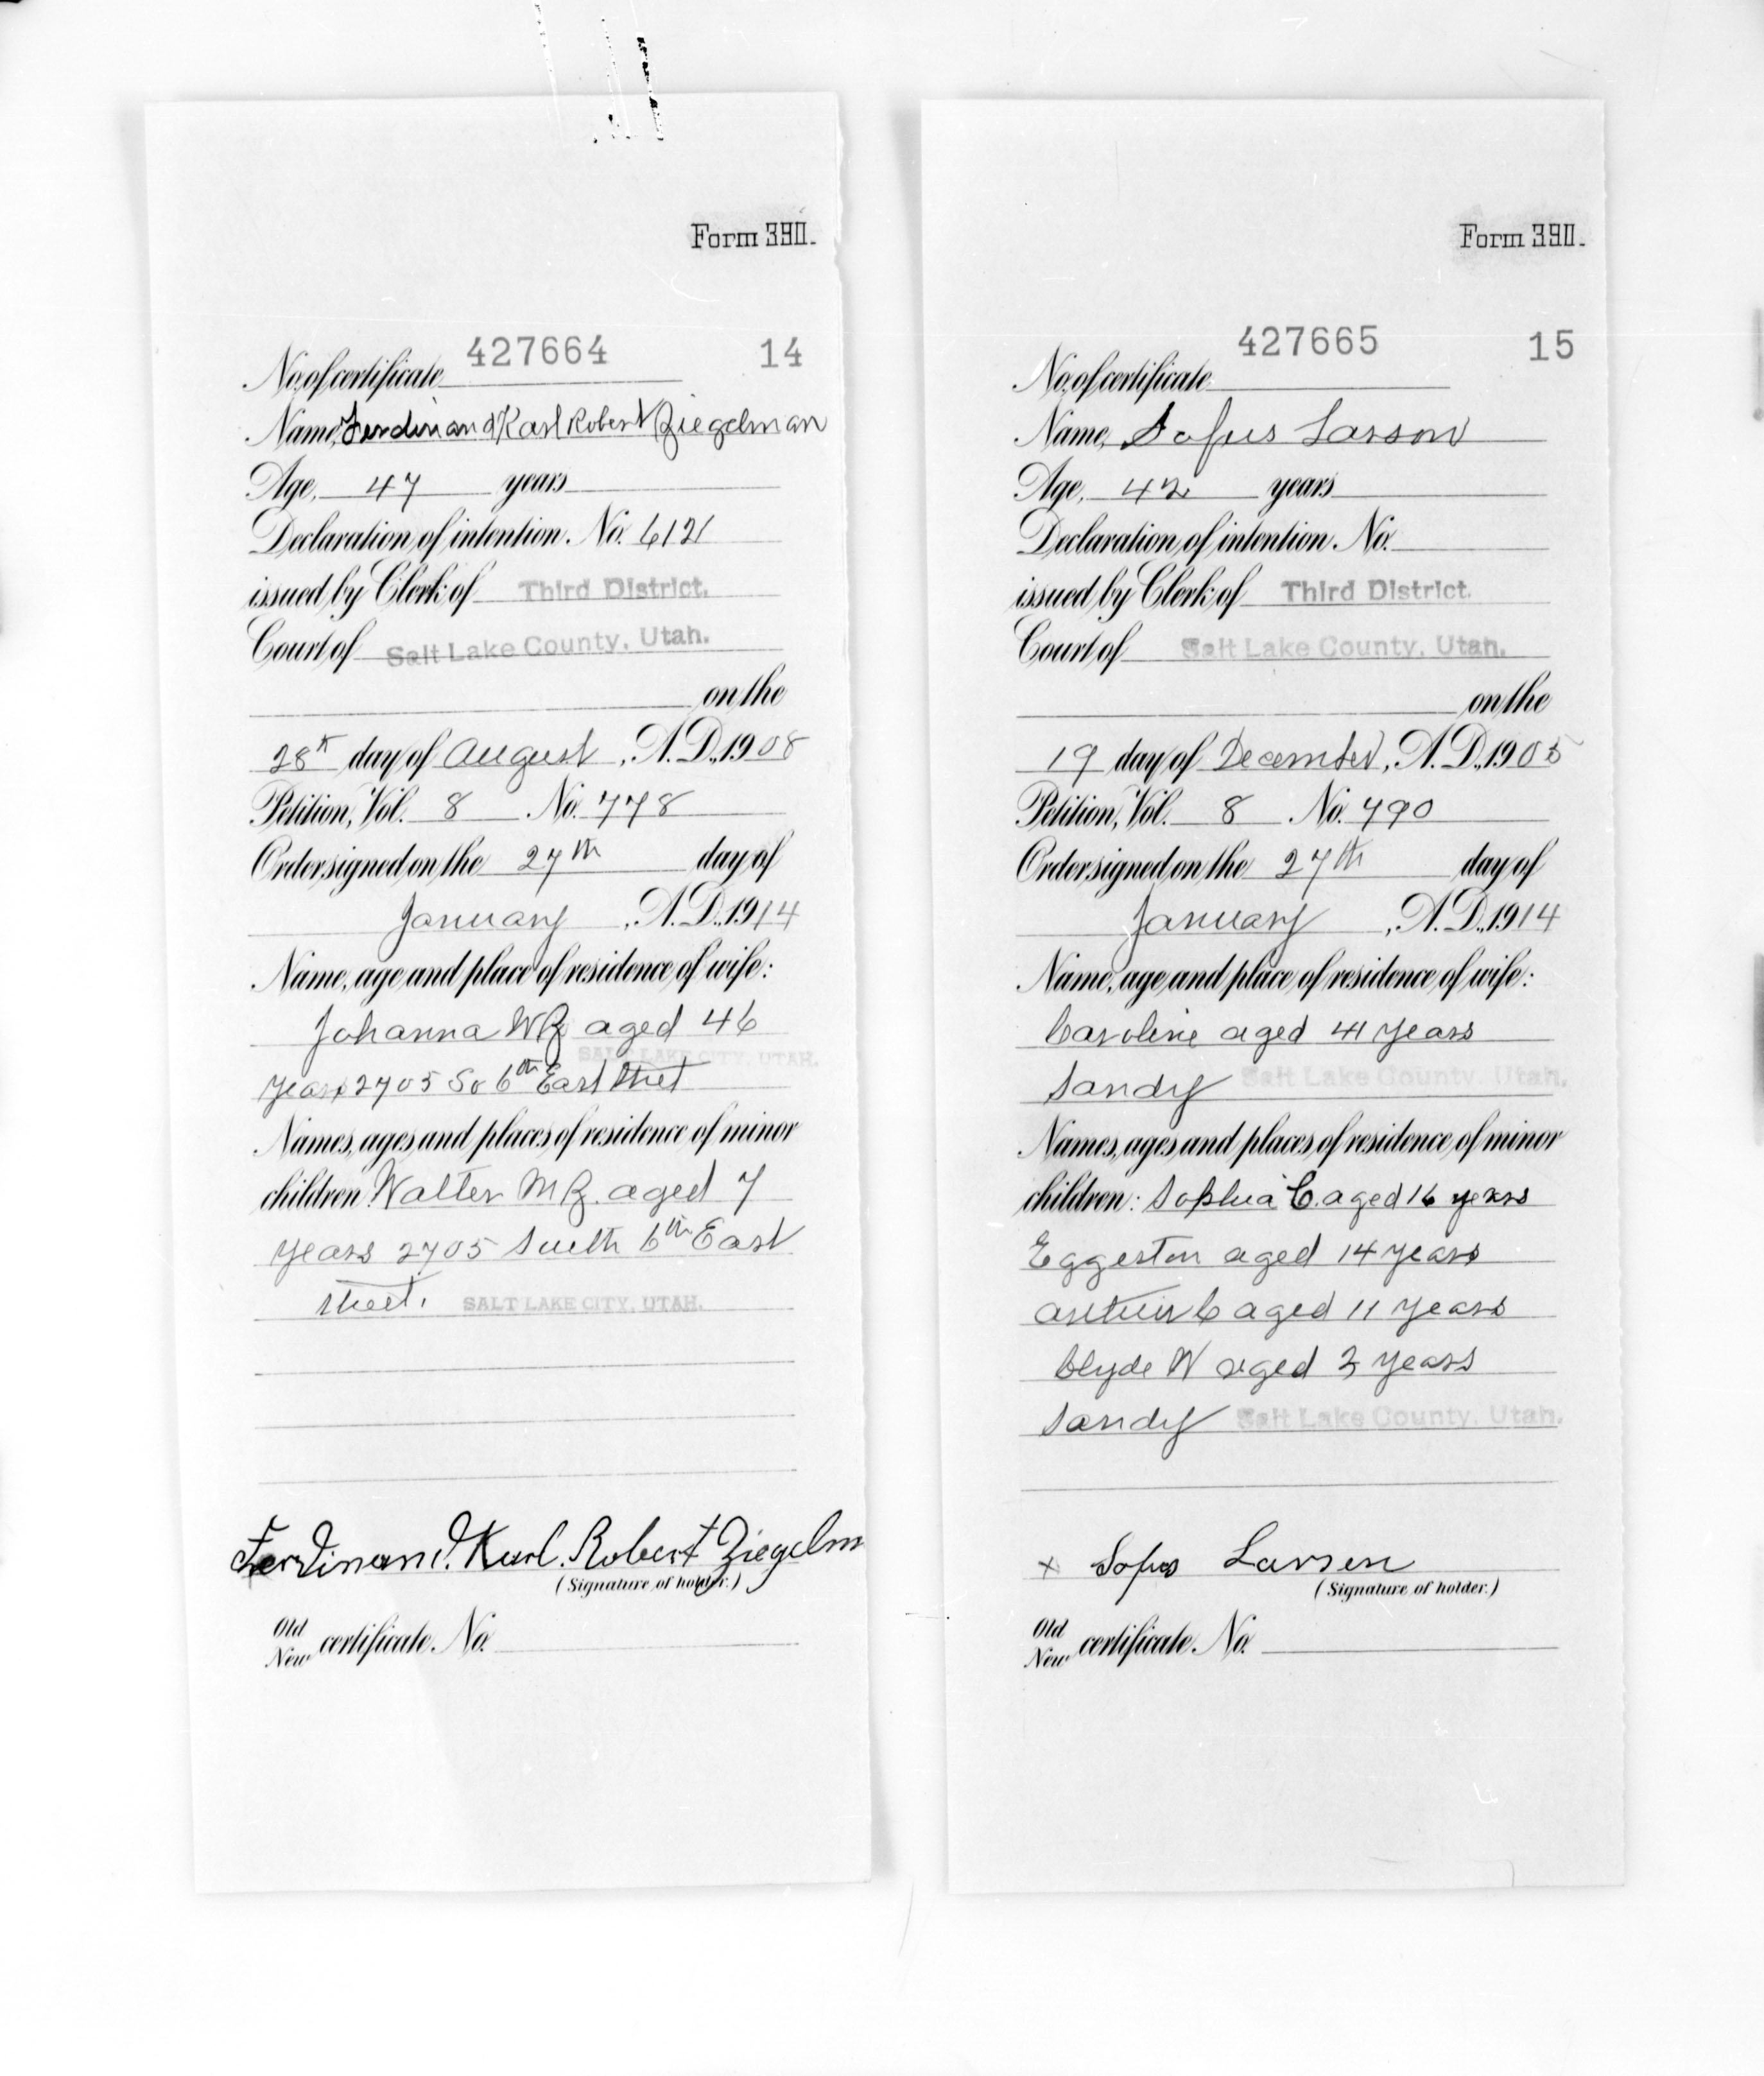 Form 390.
No. of certificate 427664 14
Name, Ferdinand Karl Robert Ziegelman
Age, 47 years
Declaration of intention. No. 6121
issued by Clerk of Third District.
Court of Salt Lake County, Utah.
on the
28th day of August, A.D., 1908
Petition, Vol. 8 No. 778
Order signed on the 27th day of
January, A.D., 1914
Name, age and place of residence of wife:
Johanna W Z aged 46
SALT LAKE CITY, UTAH.
years 2705 So 6th East Street
Names, ages and places of residence of minor
children: Walter M Z. aged 7
years 2705 South 6th East
street. SALT LAKE CITY, UTAH.
Ferdinand. Karl. Robert Ziegelm
(Signature of holder.)
Old
New certificate. No.
Form 390.
No. of certificate 427665 15
Name, Sofus Larson
Age, 42 years
Declaration of intention. No.
issued by Clerk of Third District.
Court of Salt Lake County, Utah.
on the
19 day of December, A.D., 1905
Petition, Vol. 8 No. 790
Order signed on the 27th day of
January, A.D., 1914
Name, age and place of residence of wife:
Caroline aged 41 years
Sandy Salt Lake County, Utah.
Names, ages and places of residence of minor
children: Sophia C. aged 16 years
Eggerton aged 14 years
Arthur C aged 11 years
Clyde W aged 3 years
Sandy Salt Lake County, Utah.
x Sofus Larsen
(Signature of holder.)
Old
New certificate. No.